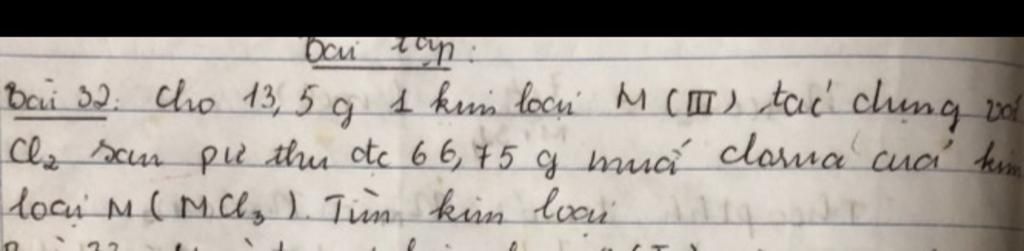 Bài tập:
Bài 32: Cho 13,5 g 1 kim loại M (III) tác dụng với
Cl₂ sau pư thu đc 66,75 g muối clorua của kim
loại M (MCl₃). Tìm kim loại